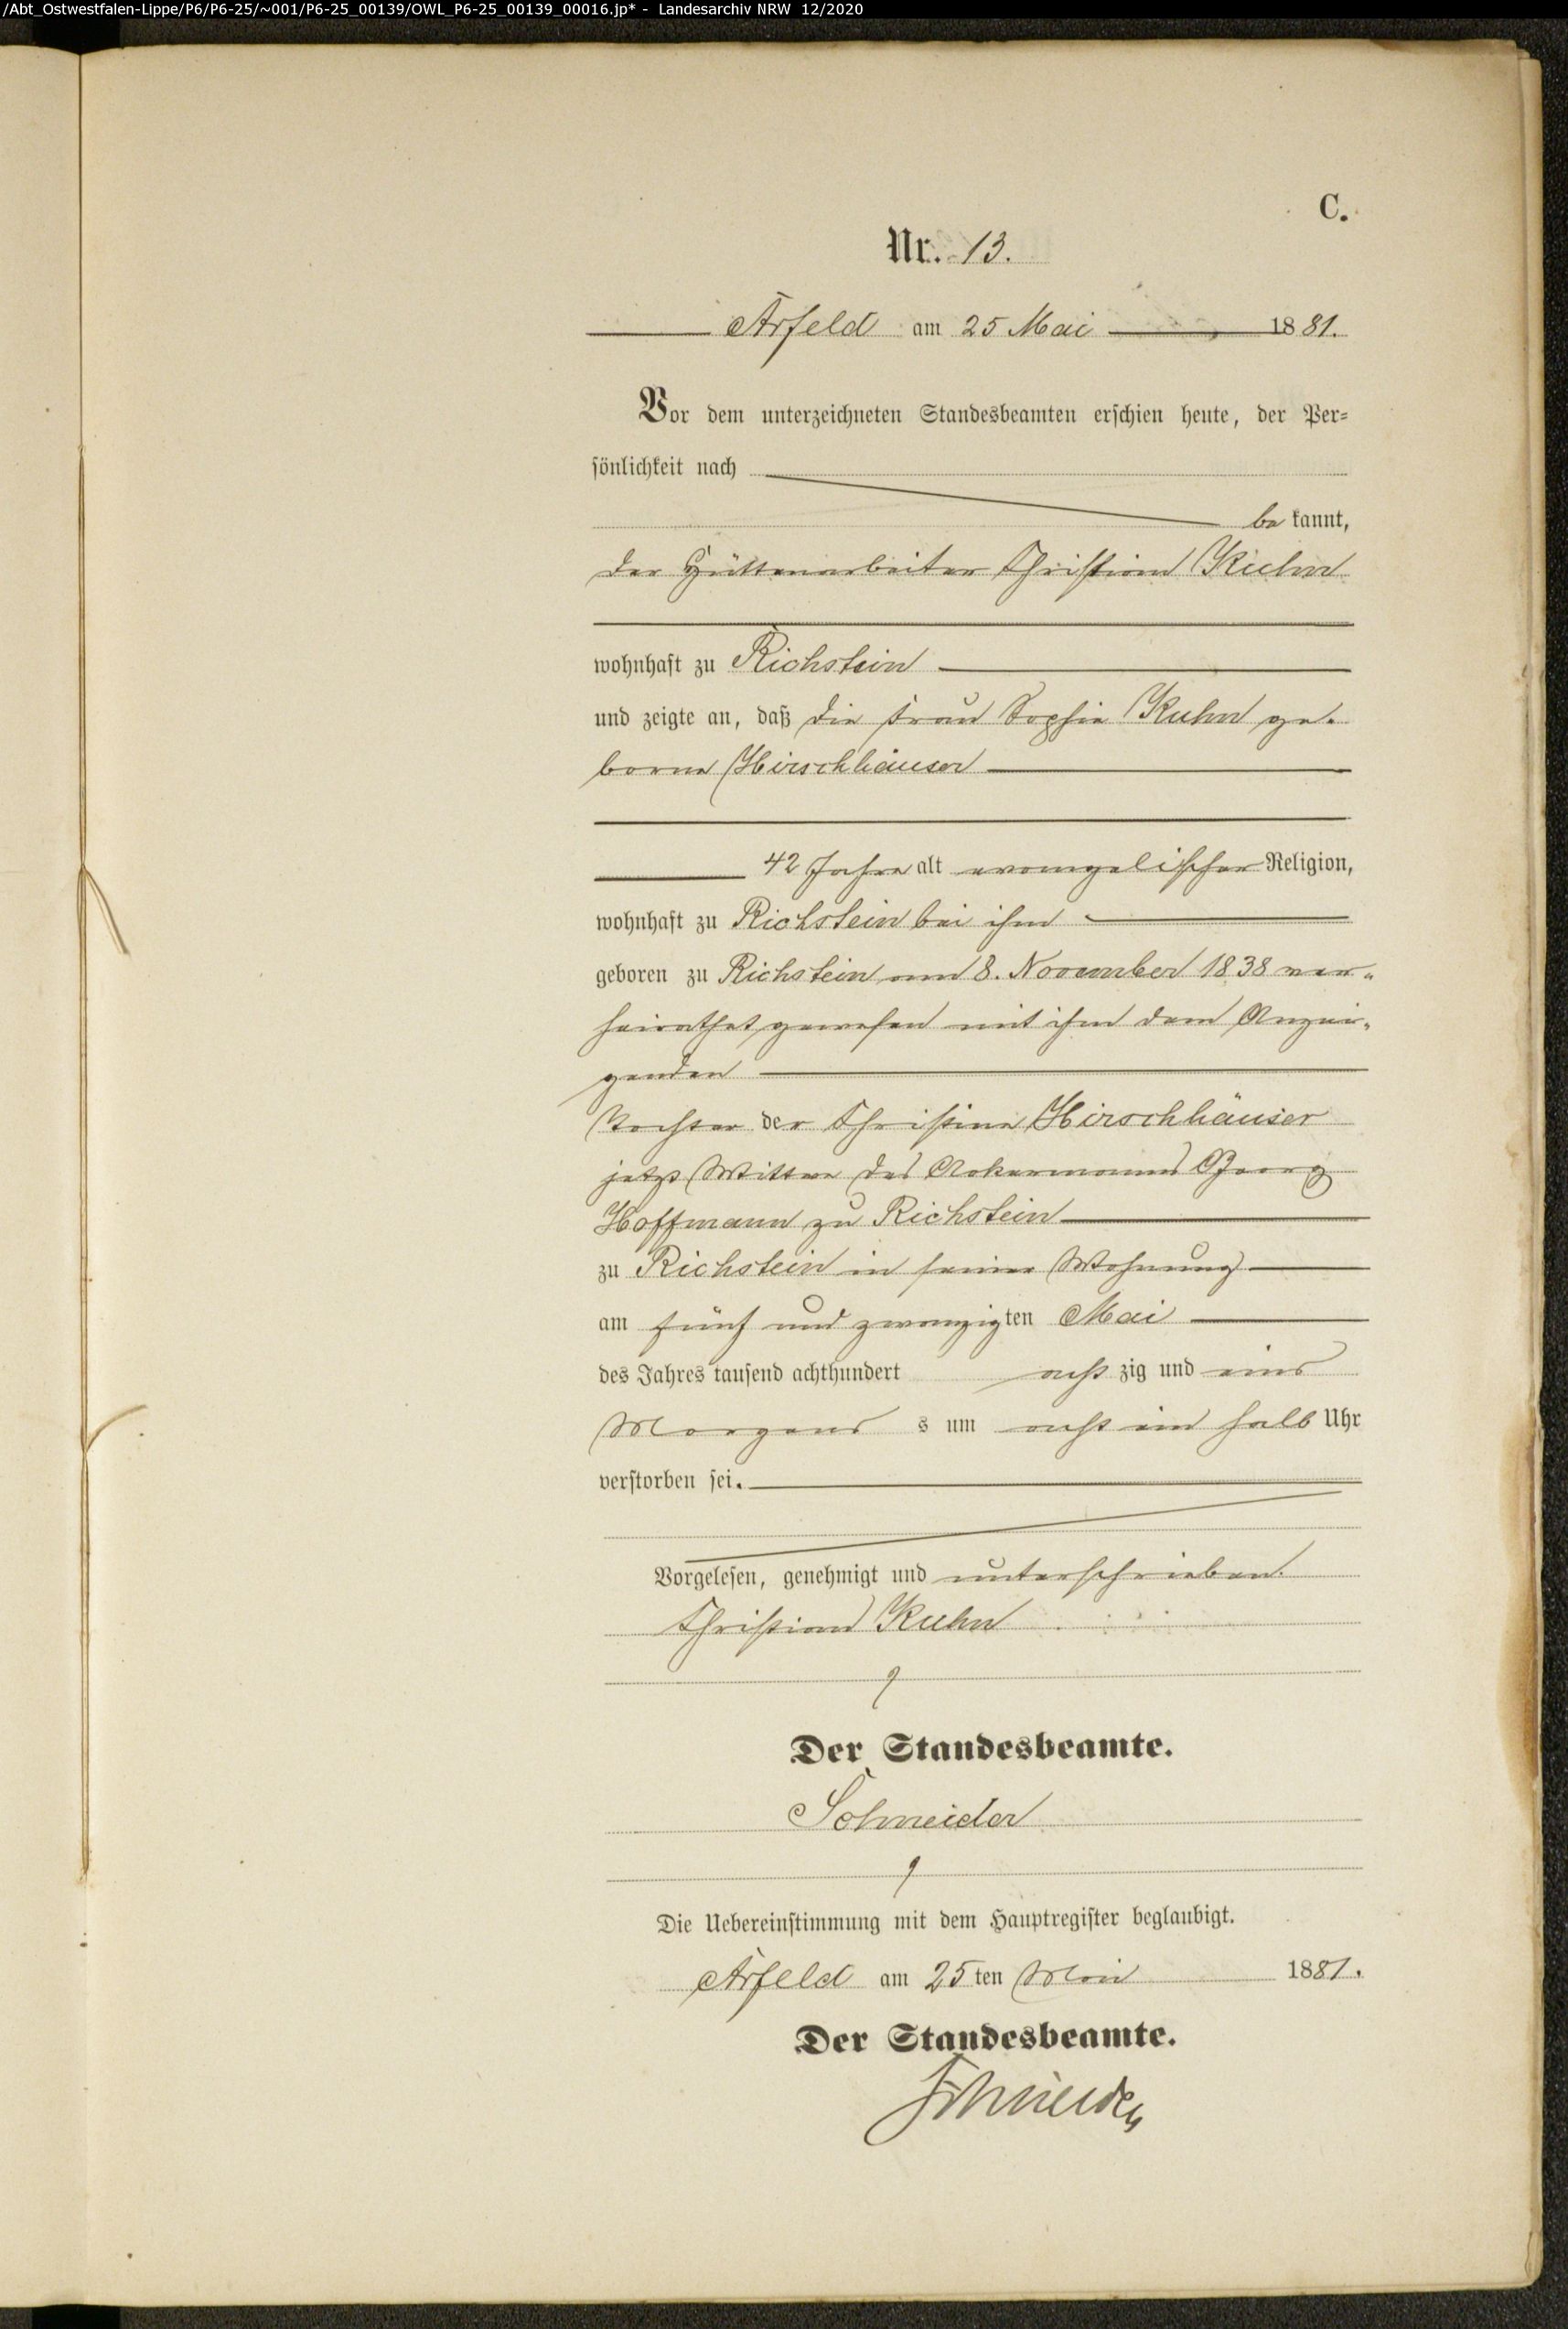 /Abt_Ostwestfalen-Lippe/P6/P6-25/~001/P6-25_00139/OWL_P6-25_00139_00016.jp* - Landesarchiv NRW 12/2020
C.
Nr. 13.
Arfeld am 25 Mai 1881.
Vor dem unterzeichneten Standesbeamten erschien heute, der Per-
sönlichkeit nach
be kannt,
der Hüttenarbeiter Christian Kuhn
wohnhaft zu Richstein
und zeigte an, daß die Frau Sophie Kuhn ge-
borne Hirschhäuser
42 Jahre alt evangelischer Religion,
wohnhaft zu Richstein bei ihm
geboren zu Richstein am 8. November 1838 ver-
heirathet gewesen mit ihm dem Anzei-
genden
Tochter der Christine Hirschhäuser
jetzt Wittwe des Ackermanns Georg
Hoffmann zu Richstein
zu Richstein in seiner Wohnung
am fünf und zwanzigten Mai
des Jahres tausend achthundert acht zig und eins
Morgens s um acht ein halb Uhr
verstorben sei.
Vorgelesen, genehmigt und unterschrieben.
Christian Kuhn
Der Standesbeamte.
Schneider
Die Uebereinstimmung mit dem Hauptregister beglaubigt.
Arfeld am 25ten Mai 1881.
Der Standesbeamte.
Schneider